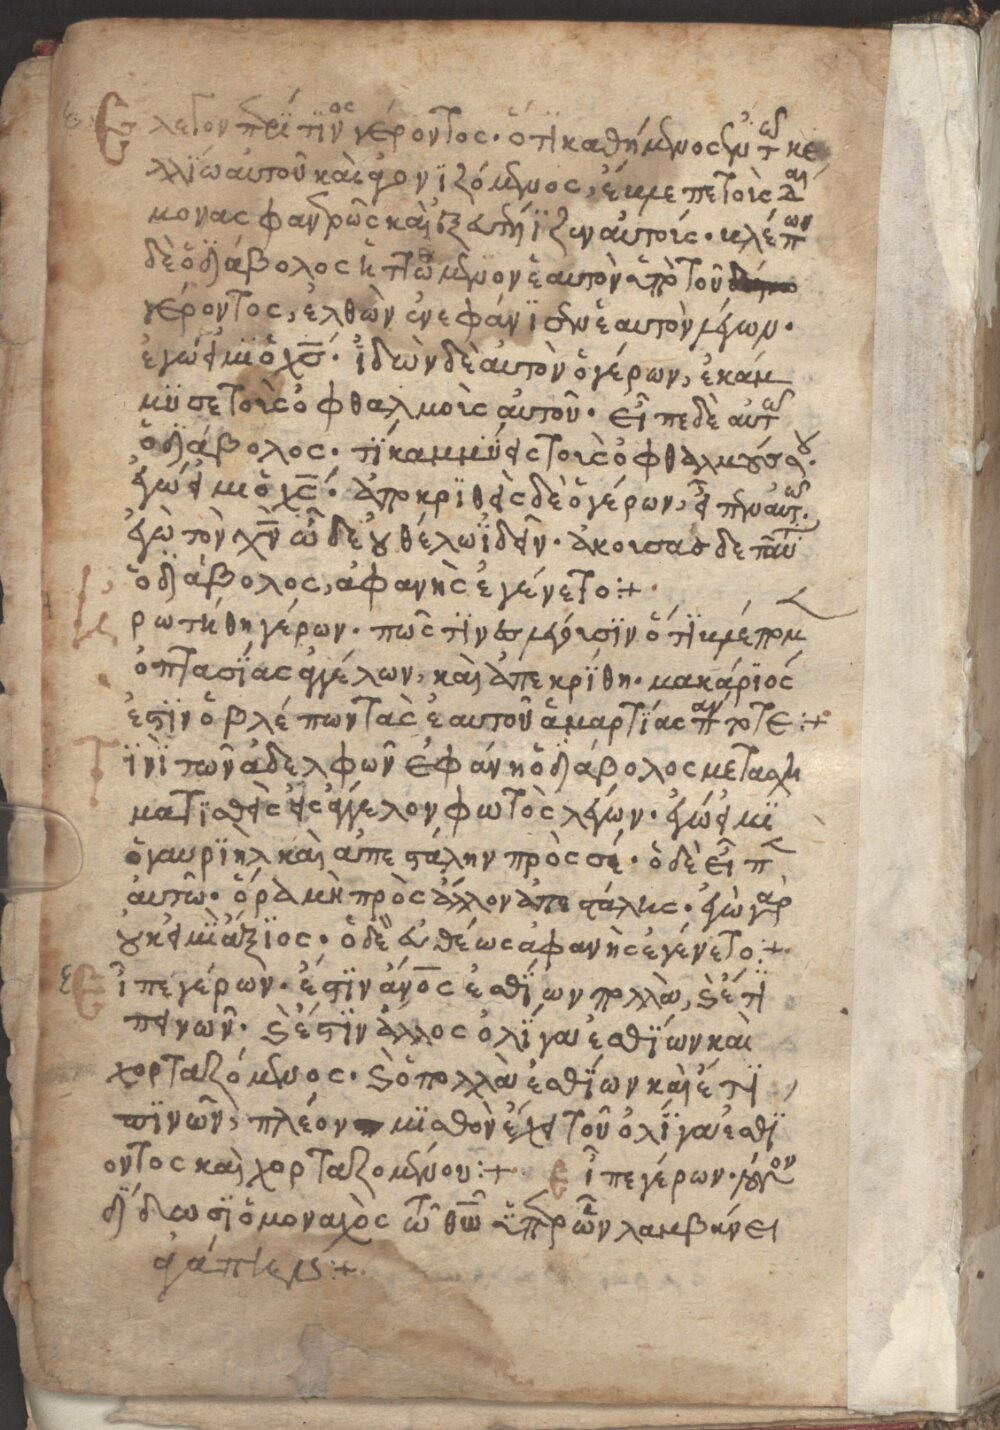 Ἐλεγον περί τινος γέροντος· ὅτι καθήμενος ἐν τῶ κε
λλίω αὐτοῦ καὶ ἀγονιζόμενος, ἔκμεπε τοὶς δαί
μονας φανερῶς καὶ ἐξευτήλιζεν αὐτοίς· κλέπων
δὲ ὁ διάβολος ἡττώμενον ἑαυτὸν ἀπὸ τοῦ
γέροντος, ἐλθὼν ἐνεφάνισεν ἑαυτὸν λέγων·
ἐγώ εἰμι ὁ χς· ἰδὼν δὲ αὐτὸν ὁ γέρων, ἐκάμ
μυσε τοὶς ὀφθαλμοὶς αὐτοῦ· εἶπε δὲ αὐτῶ
ὁ διάβολος· τί καμμύεις τοὶς ὀφθαλμούς σου·
ἐγώ εἰμι ὁ χς· ἀποκριθεὶς δὲ ὁ γέρων, εἶπεν αὐτῶ·
ἐγὼ τὸν χν ὧδε οὐ θέλω ἰδεῖν· ἀκοισας δε ταῦτα
ὁ διάβολος, ἀφανὴς ἐγένετο:+
ρωτήθη γέρων· πῶς τινὲς λέγοισιν ὅτι
ὀπτασίας ἀγγέλων, καὶ ἀπεκρίθη· μακάριός
ἐστιν ὁ βλέπων τὰς ἑαυτοῦ ἁμαρτίας πάντοτε:+
Τινὶ τῶν ἀδελφῶν ἐφάνη ὁ διάβολος μετασχη
ματισθεὶς εἰς ἄγγελον φωτὸς λέγων· ἐγώ εἰμι
ὁ γαυριὴλ καὶ ἀπεστάλην πρὸς σέ· ὁ δὲ εἶπεν
αὐτῶ· ὅρα μὴ πρὸς ἄλλον ἀπεστάλης· ἐγὼ γὰρ
οὐκ εἰμὶ ἄξιος· ὁ δὲ εὐθέως ἀφανὴς ἐγένετο:+
Εἶπε γέρων· ἔστιν ἄνος ἐσθίων πολλὰ, καὶ ἔτι
πεινῶν· καὶ ἔστιν ἄλλος ὀλίγα ἐσθίων καὶ
χορταζόμενος· καὶ ὁ πολλὰ ἐσθίων καὶ ἔτι
πινῶν, πλέον μισθὸν ἔχει τοῦ ὀλίγα ἐσθί
οντος καὶ χορταζομένου:+ Εἶπε γέρων·
δίδωσι ὁ μοναχὸς τῶ θω λαμβάνει
ἀγάπης:+